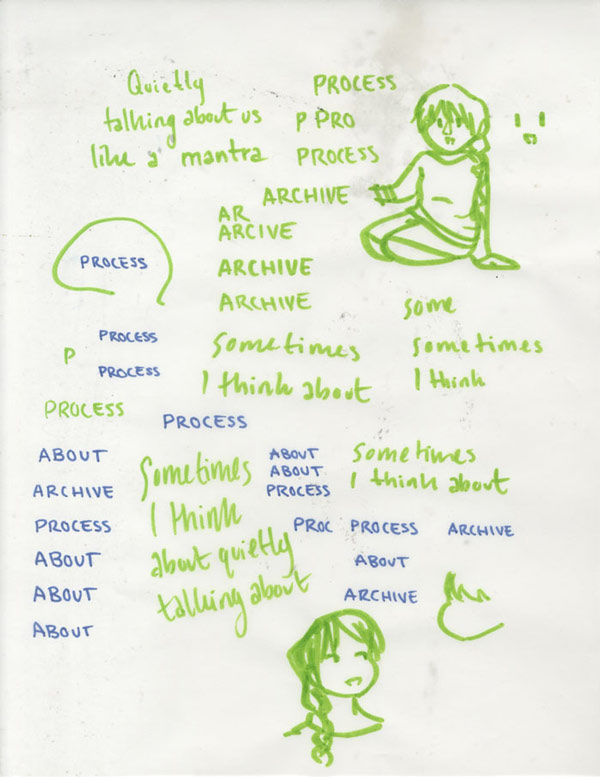 Quietly
talking about us
like a mantra
PROCESS
P PRO
PROCESS
ARCHIVE
AR
ARCIVE
ARCHIVE
ARCHIVE
PROCESS
P
PROCESS
PROCESS
PROCESS
sometimes
I think about
some
sometimes
I think
PROCESS
ABOUT
ARCHIVE
PROCESS
ABOUT
ABOUT
ABOUT
Sometimes
I think
about quietly
talking about
ABOUT
ABOUT
PROCESS
Sometimes
I think about
PROC PROCESS ARCHIVE
ABOUT
ARCHIVE